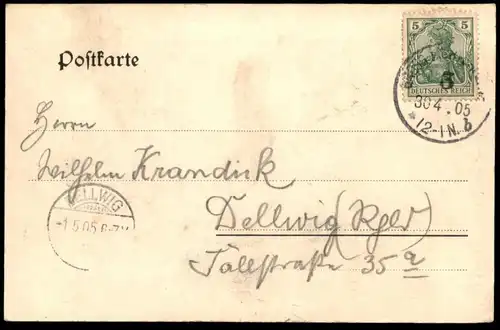 Postkarte
5 5
DEUTSCHES REICH
30 4 . 05
* 12-1N. b
Herrn
Wilhelm Krandick
DELLWIG
-1.5.05.
Dellwig
straße 35 a